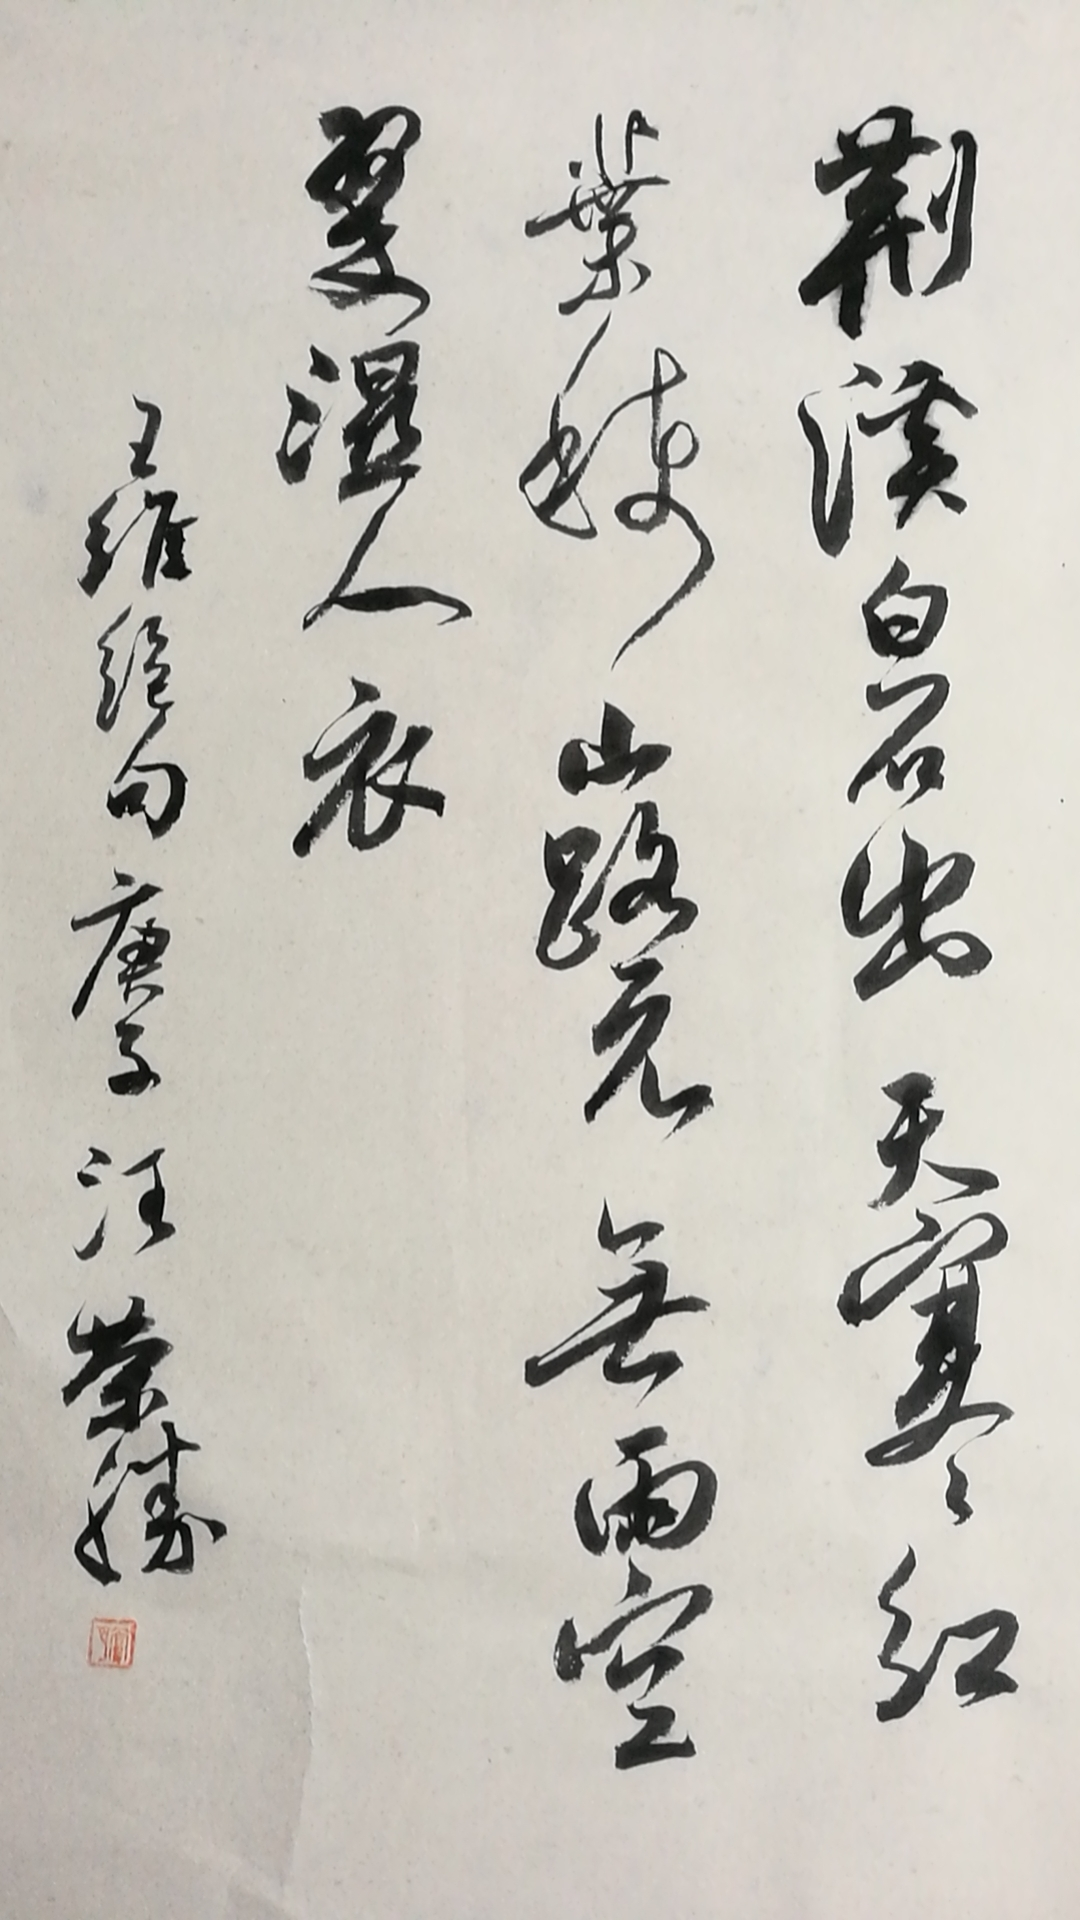 荆溪白石出天寒紅
葉稀山路元無雨空
翠湿人衣
王維絕句庚子汪榮勝